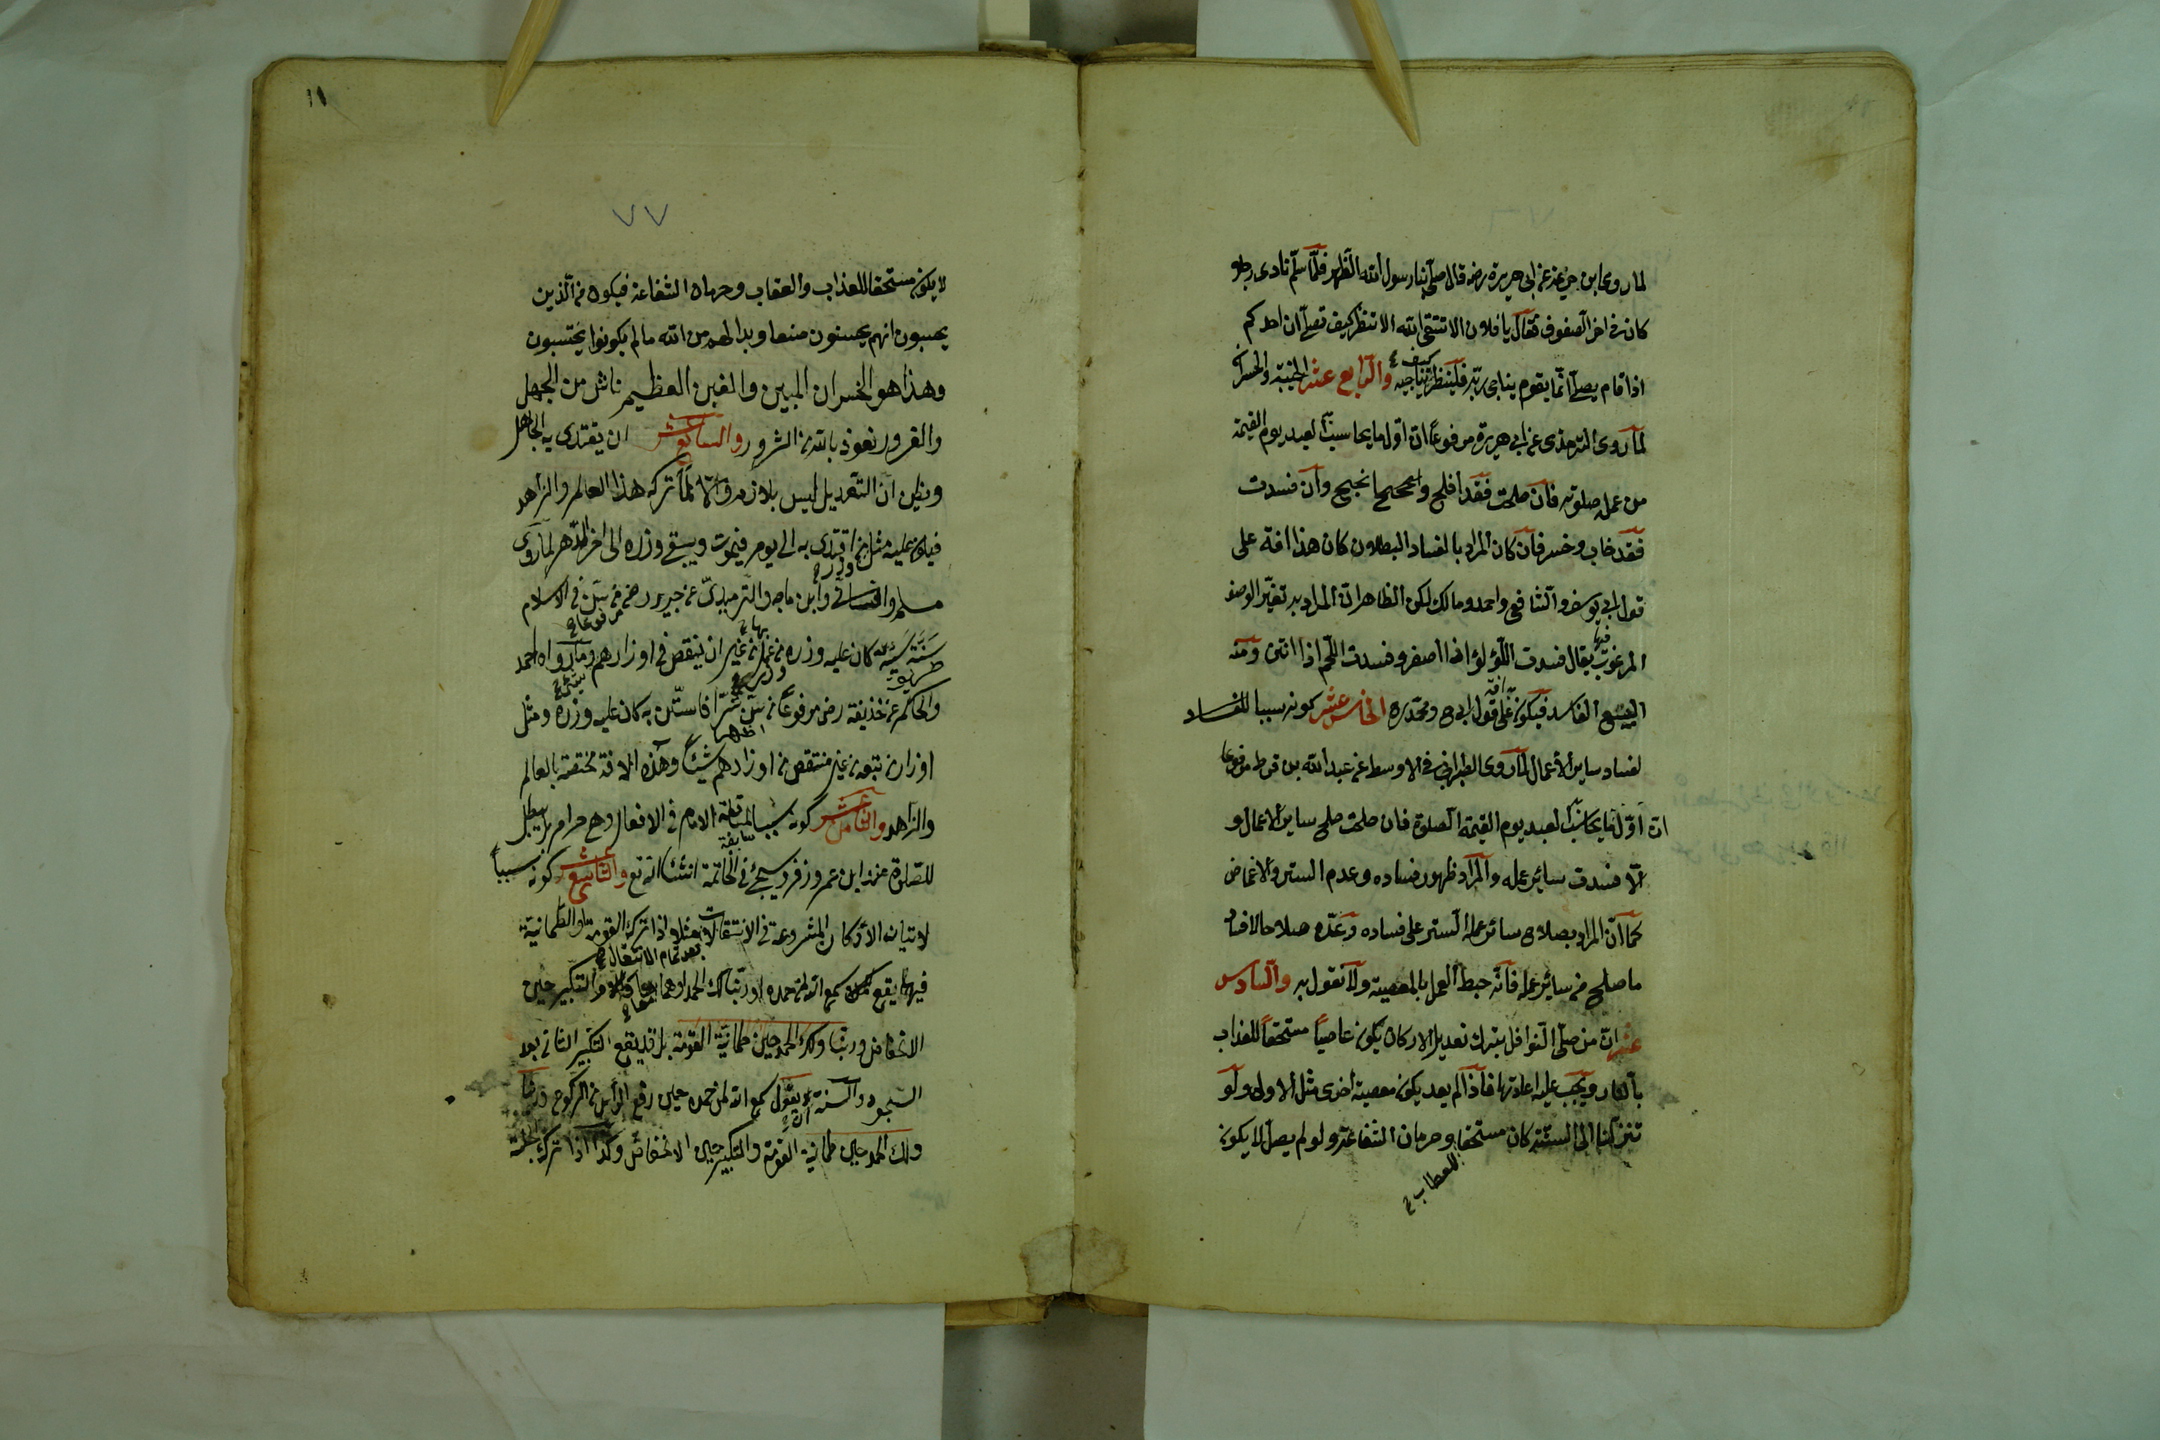 لما روى ابن خزيمة عن ابى هريرة رضه قال صلى بنا رسول الله الظهر فلما سلم نادى رجلا
كان فى اخر الصفوف فقال يا فلان الا تتقى الله الا تنظر كيف تصلى ان احدكم
اذا قام يصلى انما يقوم يناجى ربه فلينظر كيف يناجيه والرابع عشر الخيبة والخسران
لما روى الترمذى عن ابى هريرة مرفوعا ان اول ما يحاسب العبد يوم القيمة
من عمله صلوته فان صلحت فقد افلح وانجح وان فسدت
فقد خاب وخسر فان كان المراد بالفساد البطلان كان هذا افة على
قول ابى يوسف والشافعى واحمد ومالك لكن الظاهر ان المراد به تغير الوصف
المرغوب فيها يقال فسدت اللؤلؤ اذا اصفر وفسدت اللحم اذا انتن ومنه
البيع الفاسد فيكون افة على قول ابى ح ومحمد ره الخامس عشر كونه سببا للفساد
لفساد ساير الأعمال لما روى الطبرانى فى الاوسط عن عبد الله بن قرط مرفوعا
ان اول ما يحاسب العبد يوم القيمة الصلوة فان صلحت صلح ساير الاعمال و
الا فسدت ساير عمله والمراد ظهور فساده وعدم الستر والاغماض
كما ان المراد بصلاح سائر عمله الستر على فساده وعده صلاحا لا فساد
ما صلح من سائر عمله فانه حبط العمل بالمعصية ولا نقول به والسادس
عشر ان من صلى النوافل بترك تعديل الاركان يكون عاصيا مستحقا للعذاب
بالنار ويجب عليه اعادتها فاذا لم يعد يكون معصية اخرى مثل الاول ولو
تنزلنا الى السنة كان مستحقا وحرمان الشفاعة ولو لم يصل لا يكون
للعطاب
١١
٧٧
لا يكون مستحقا للعذاب والعقاب وحرمان الشفاعة فيكون من الذين
يحسبون انهم يحسنون صنعا وبدا لهم من الله ما لم يكونوا يحتسبون
وهذا هو الخسران المبين والغبن العظيم ناش من الجهل
والغرور نعوذ بالله من الشرور والسابع عشر ان يقتدى به الجاهل
ويظن ان التعديل ليس بلازم والا لما تركه هذا العالم والزاهد
فيكون عليه مثل وزر من اقتدى به الى يوم فيموت ويبقى وزره الى اخر الدهر لما روى
مسلم والنسائى وابن ماجه والترميدى عن جرير رضه مرفوعا من سن فى الاسلام
سنة سيئة كان عليه وزره من عمل بها من غير ان ينقص فى اوزارهم وما رواه احمد
والحاكم عن حذيفة رض مرفوعا من سن شرا فاستن به كان عليه وزره ومثل
اوزار من تبعه غير منتقص من اوزارهم شيئا وهذه الافة مختصة بالعالم
والزاهد والثامن عشر كونه سببا لمسابقة الامام فى الافعال وهى حرام بل يبطل
للصلوة عند ابن عمر وزفر وسيجئ فى الخاتمة انشاء الله تع والتاسع عشر كونه سببا
لاتيان الأذكار المشروعة فى الانتقالات بعد تمام الانتقال مثلا اذا ترك القومة او الطمانية
فيها يقع سمع الله لمن حمده او ربنا لك الحمد او والتكبير حين
الانخفاض وربنا ولك الحمد حين طمانية القومة بل قد يقع التكبير الثانى بعد
السجود والسنة ان يقول سمع الله لمن حمده حين رفع الراس من الركوع وربنا
ولك الحمد حين طمانية القومة والتكبير حين الانخفاض وكذا اذا ترك الجلسة